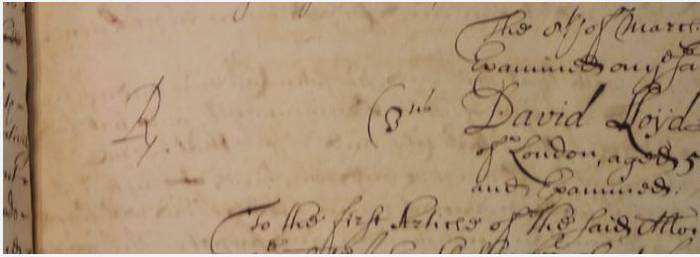 The 8th of March
Examined on ye sa
R. (3us David Lloyd
of London, aged 5
and Examined.
To the first Article of the said Alle